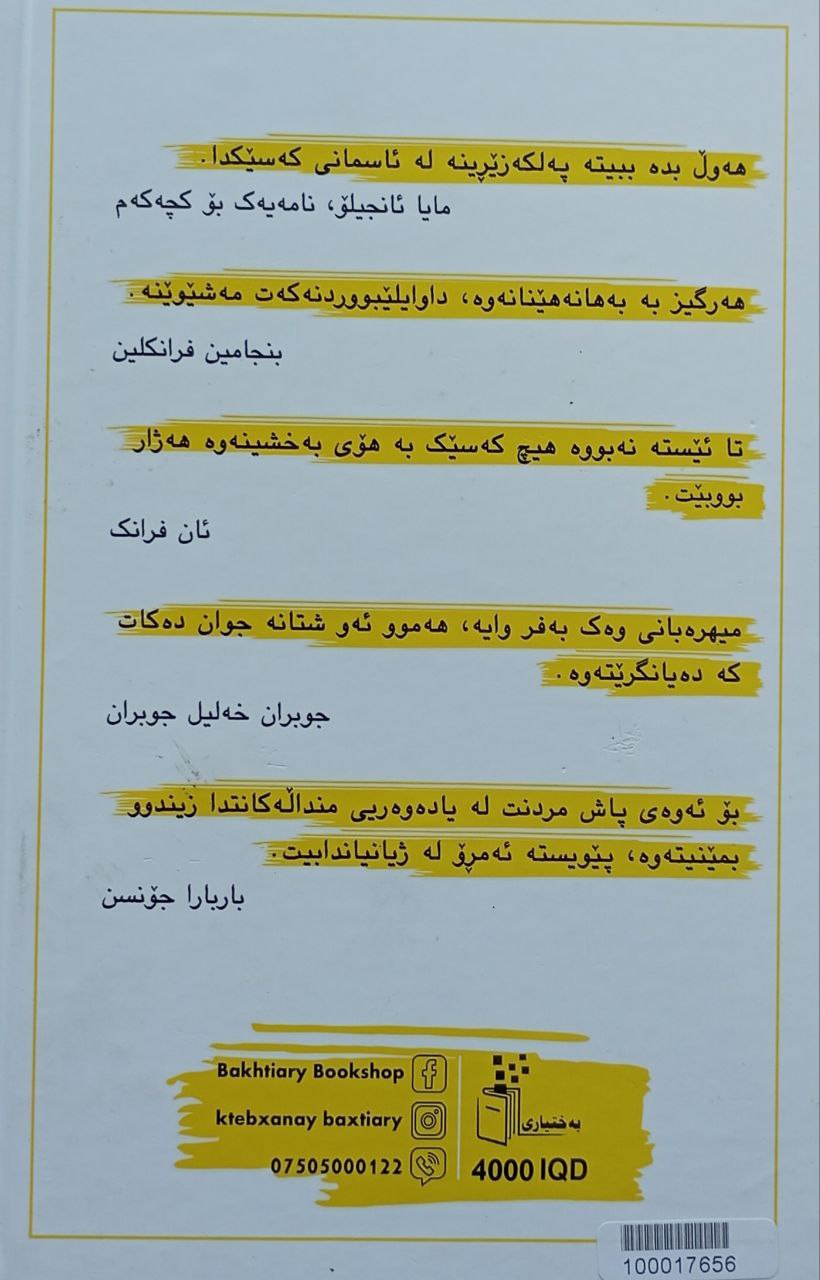 هەوڵ بدە ببیتە پەلکەزێڕینە لە ئاسمانی کەسێکدا.
مایا ئانجیلۆ، نامەیەک بۆ کچەکەم
هەرگیز بە بەهانەهێنانەوە، داوایلێبووردنەکەت مەشێوێنە.
بنجامین فرانکلین
تا ئێستە نەبووە هیچ کەسێک بە هۆی بەخشینەوە هەژار
بووبێت.
ئان فرانک
میهرەبانی وەک بەفر وایە، هەموو ئەو شتانە جوان دەکات
کە دەیانگرێتەوە.
جوبران خەلیل جوبران
بۆ ئەوەی پاش مردنت لە یادەوەریی منداڵەکانتدا زیندوو
بمێنیتەوە، پێویستە ئەمڕۆ لە ژیانیاندابیت.
باربارا جۆنسن
Bakhtiary Bookshop
ktebxanay baxtiary
07505000122
بەختیاری
4000 IQD
100017656